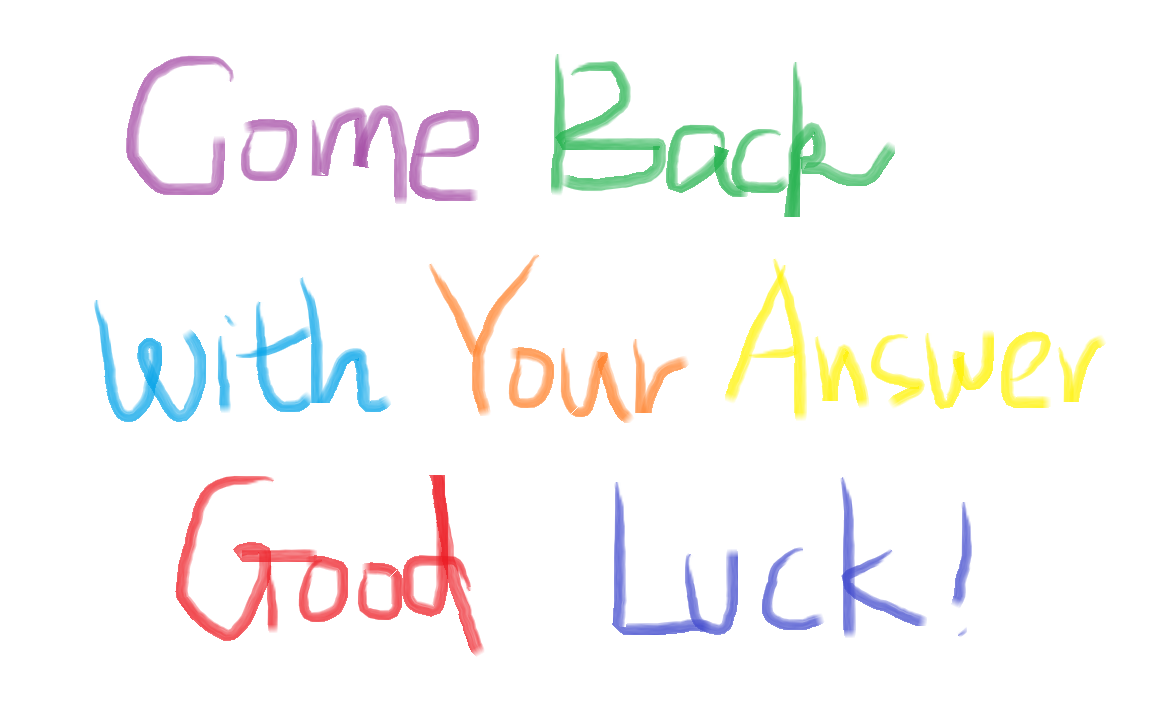 Come Back
With Your Answer
Good Luck!